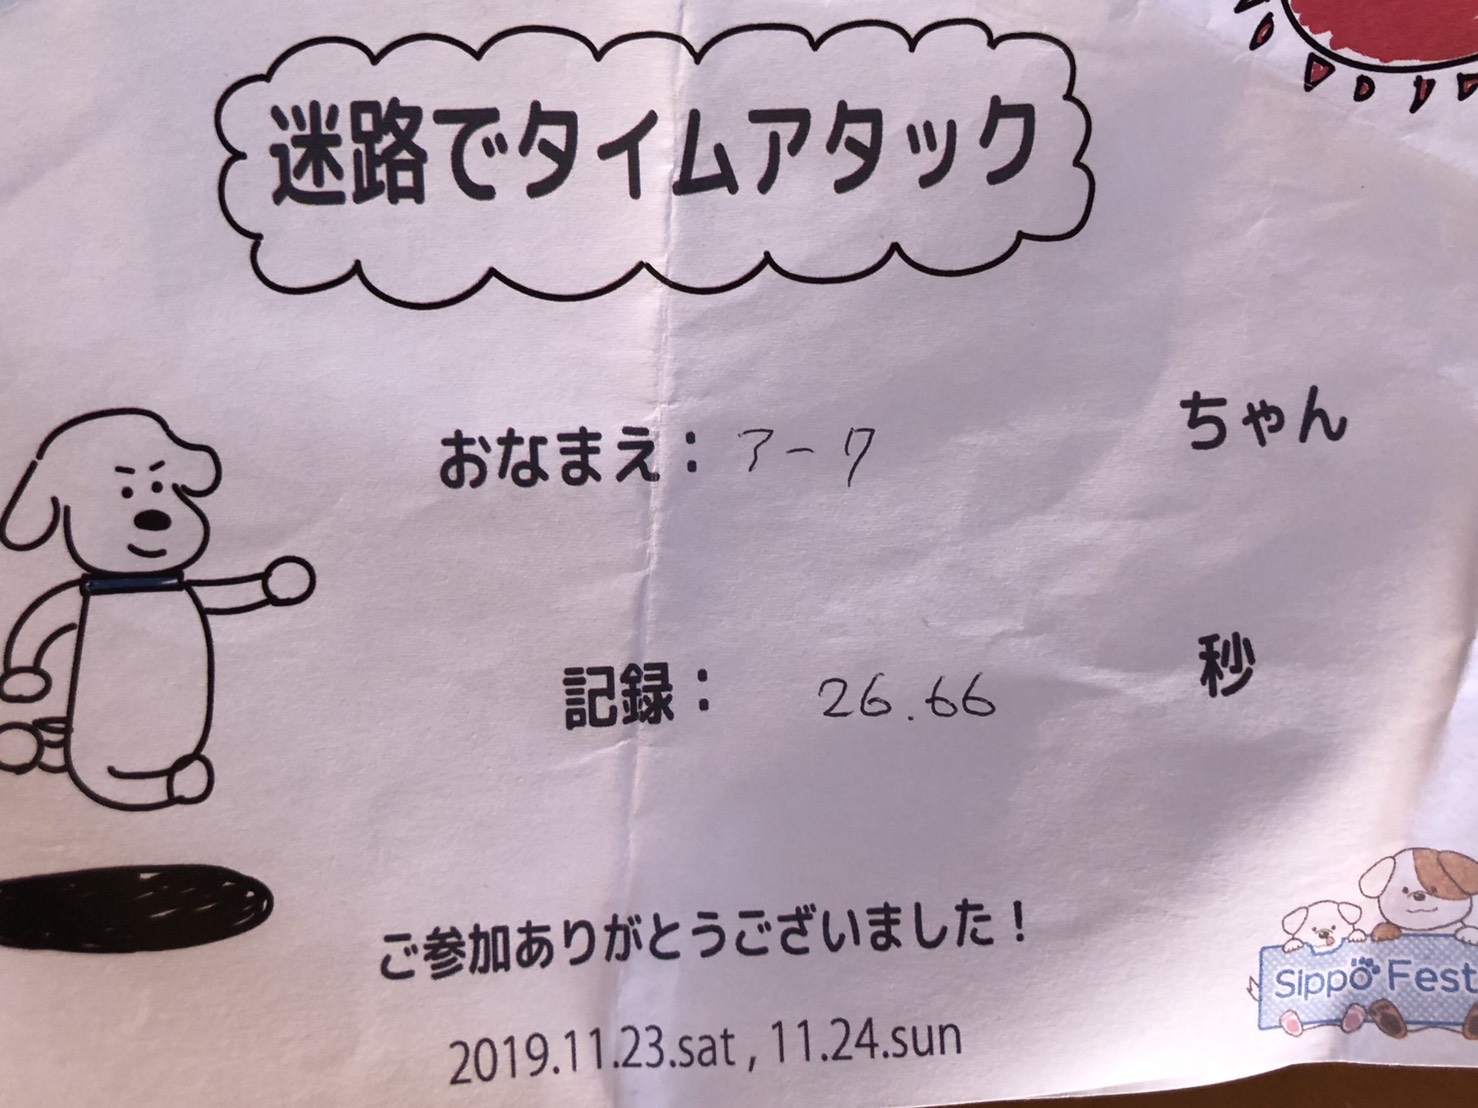 迷路でタイムアタック
おなまえ：アーク ちゃん
記録： 26.66 秒
ご参加ありがとうございました！
2019.11.23.sat , 11.24.sun
Sippo Fest